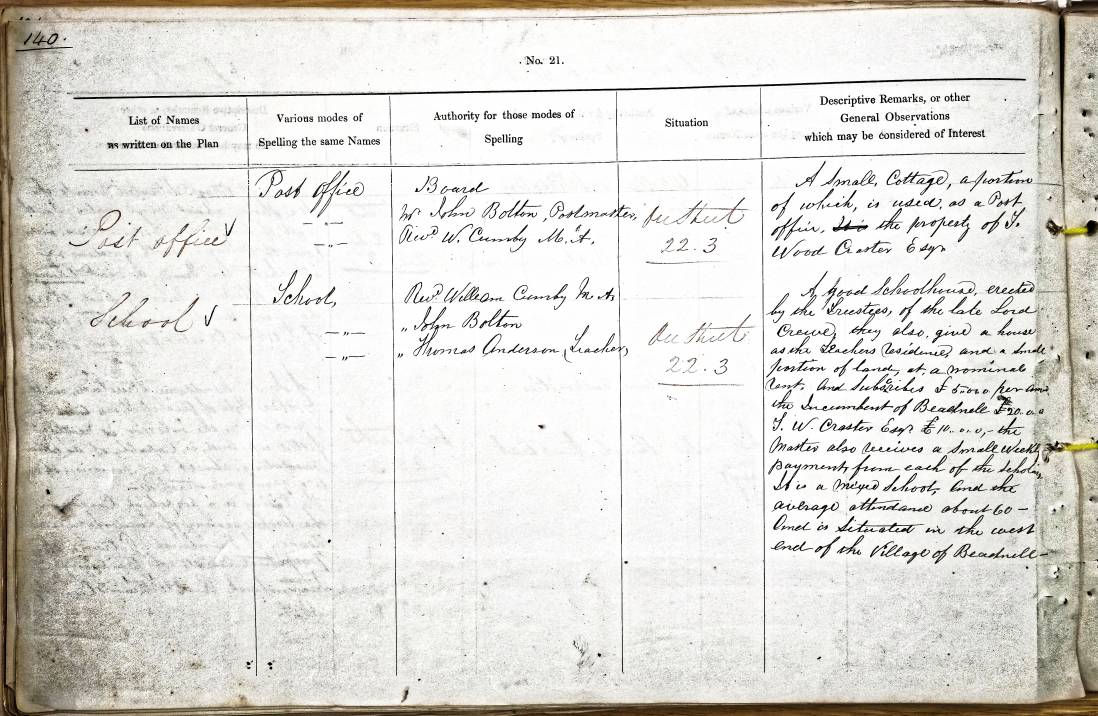 140.
No. 21.
List of Names
as written on the Plan
Various modes of
Spelling the same Names
Authority for those modes of
Spelling
Situation
Descriptive Remarks, or other
General Observations
which may be considered of Interest
Post office
Post office
—„—
—„—
Board
Mr John Bolton, Postmaster,
Revd W. Cumby M.A.
On Sheet
22.3
A Small, Cottage, a portion
of which, is used, as a Post
office, It is the property of T.
Wood Craster Esqr
School
School,
—„—
—„—
Revd William Cumby M.A.
„ John Bolton
„ Thomas Anderson, (Teacher)
On Sheet
22.3
A good Schoolhouse, erected
by the Trustees, of the late Lord
Crewe, they also, give a house
as the Teachers residence, and a Small
portion of land, at, a nominal
rent, And Subscribes £5.0.0 per Ann
the Incumbent of Beadnell £20.0.0
T. W. Craster Esqr £10.0.0, - the
Master also receives a Small Weekly
payment, from each of the Scholars,
It is a mixed School, And the
average attendance about 60 –
And is Situated in the west
end of the Village of Beadnell –